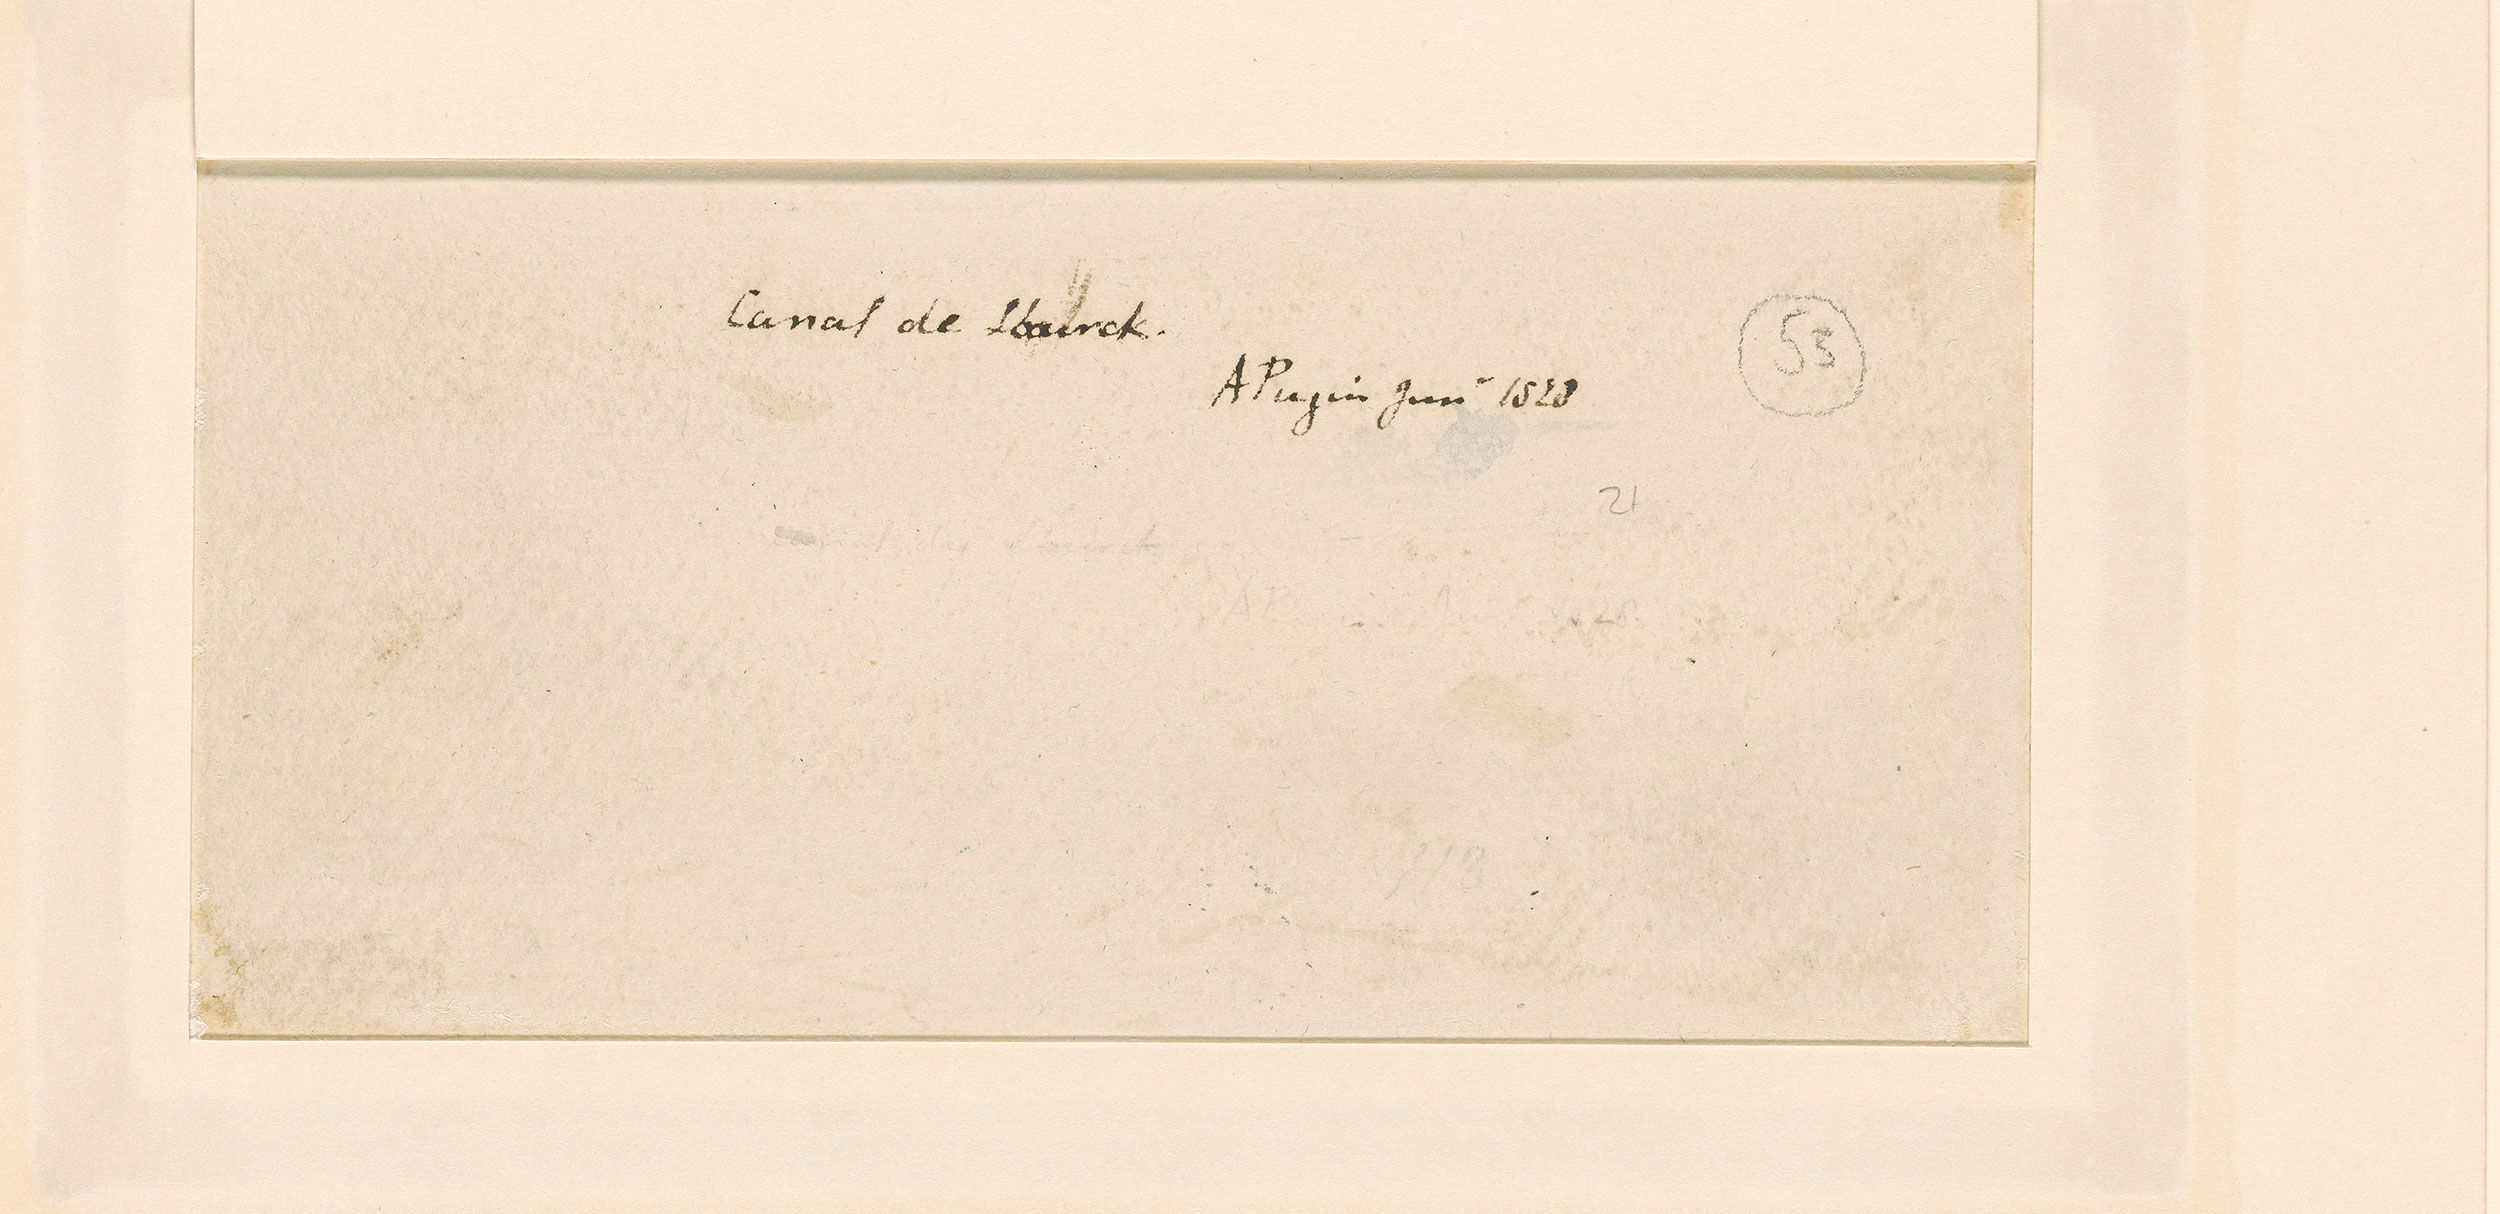 Canal de Lourck.
A Pugin Junr 1828
53
21
A Pugin Junr 1828.